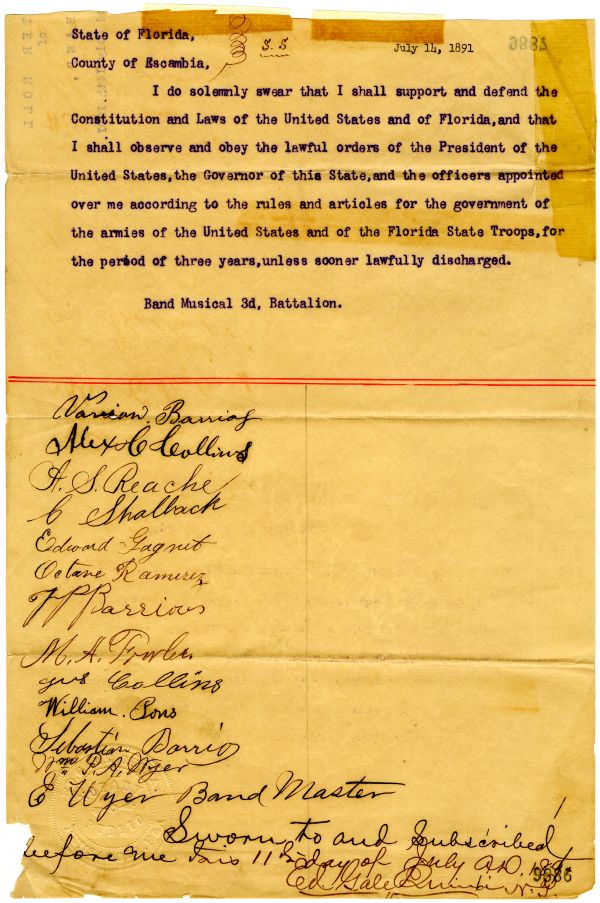 State of Florida,
S.S
July 14, 1891
9887
County of Escambia,
I do solemnly swear that I shall support and defend the
Constitution and Laws of the United States and of Florida,and that
I shall observe and obey the lawful orders of the President of the
United States,the Governor of this State,and the officers appointed
over me according to the rules and articles for the government of
the armies of the United States and of the Florida State Troops,for
the period of three years,unless sooner lawfully discharged.
Band Musical 3d, Battalion.
Barrios
Alex C Collins
A. S. Reache
C Shalback
Edward Gagnet
Octave Ramirez
F P Barrious
M. A. Fowler
Gus Collins
William. Pons
Sebastian Barrios
Wm P. A. Wyer
E Wyer Band Master
Sworn to and Subscribed
before me this 11th day of July A.D. 189
Ed. Gale N.P.
9886